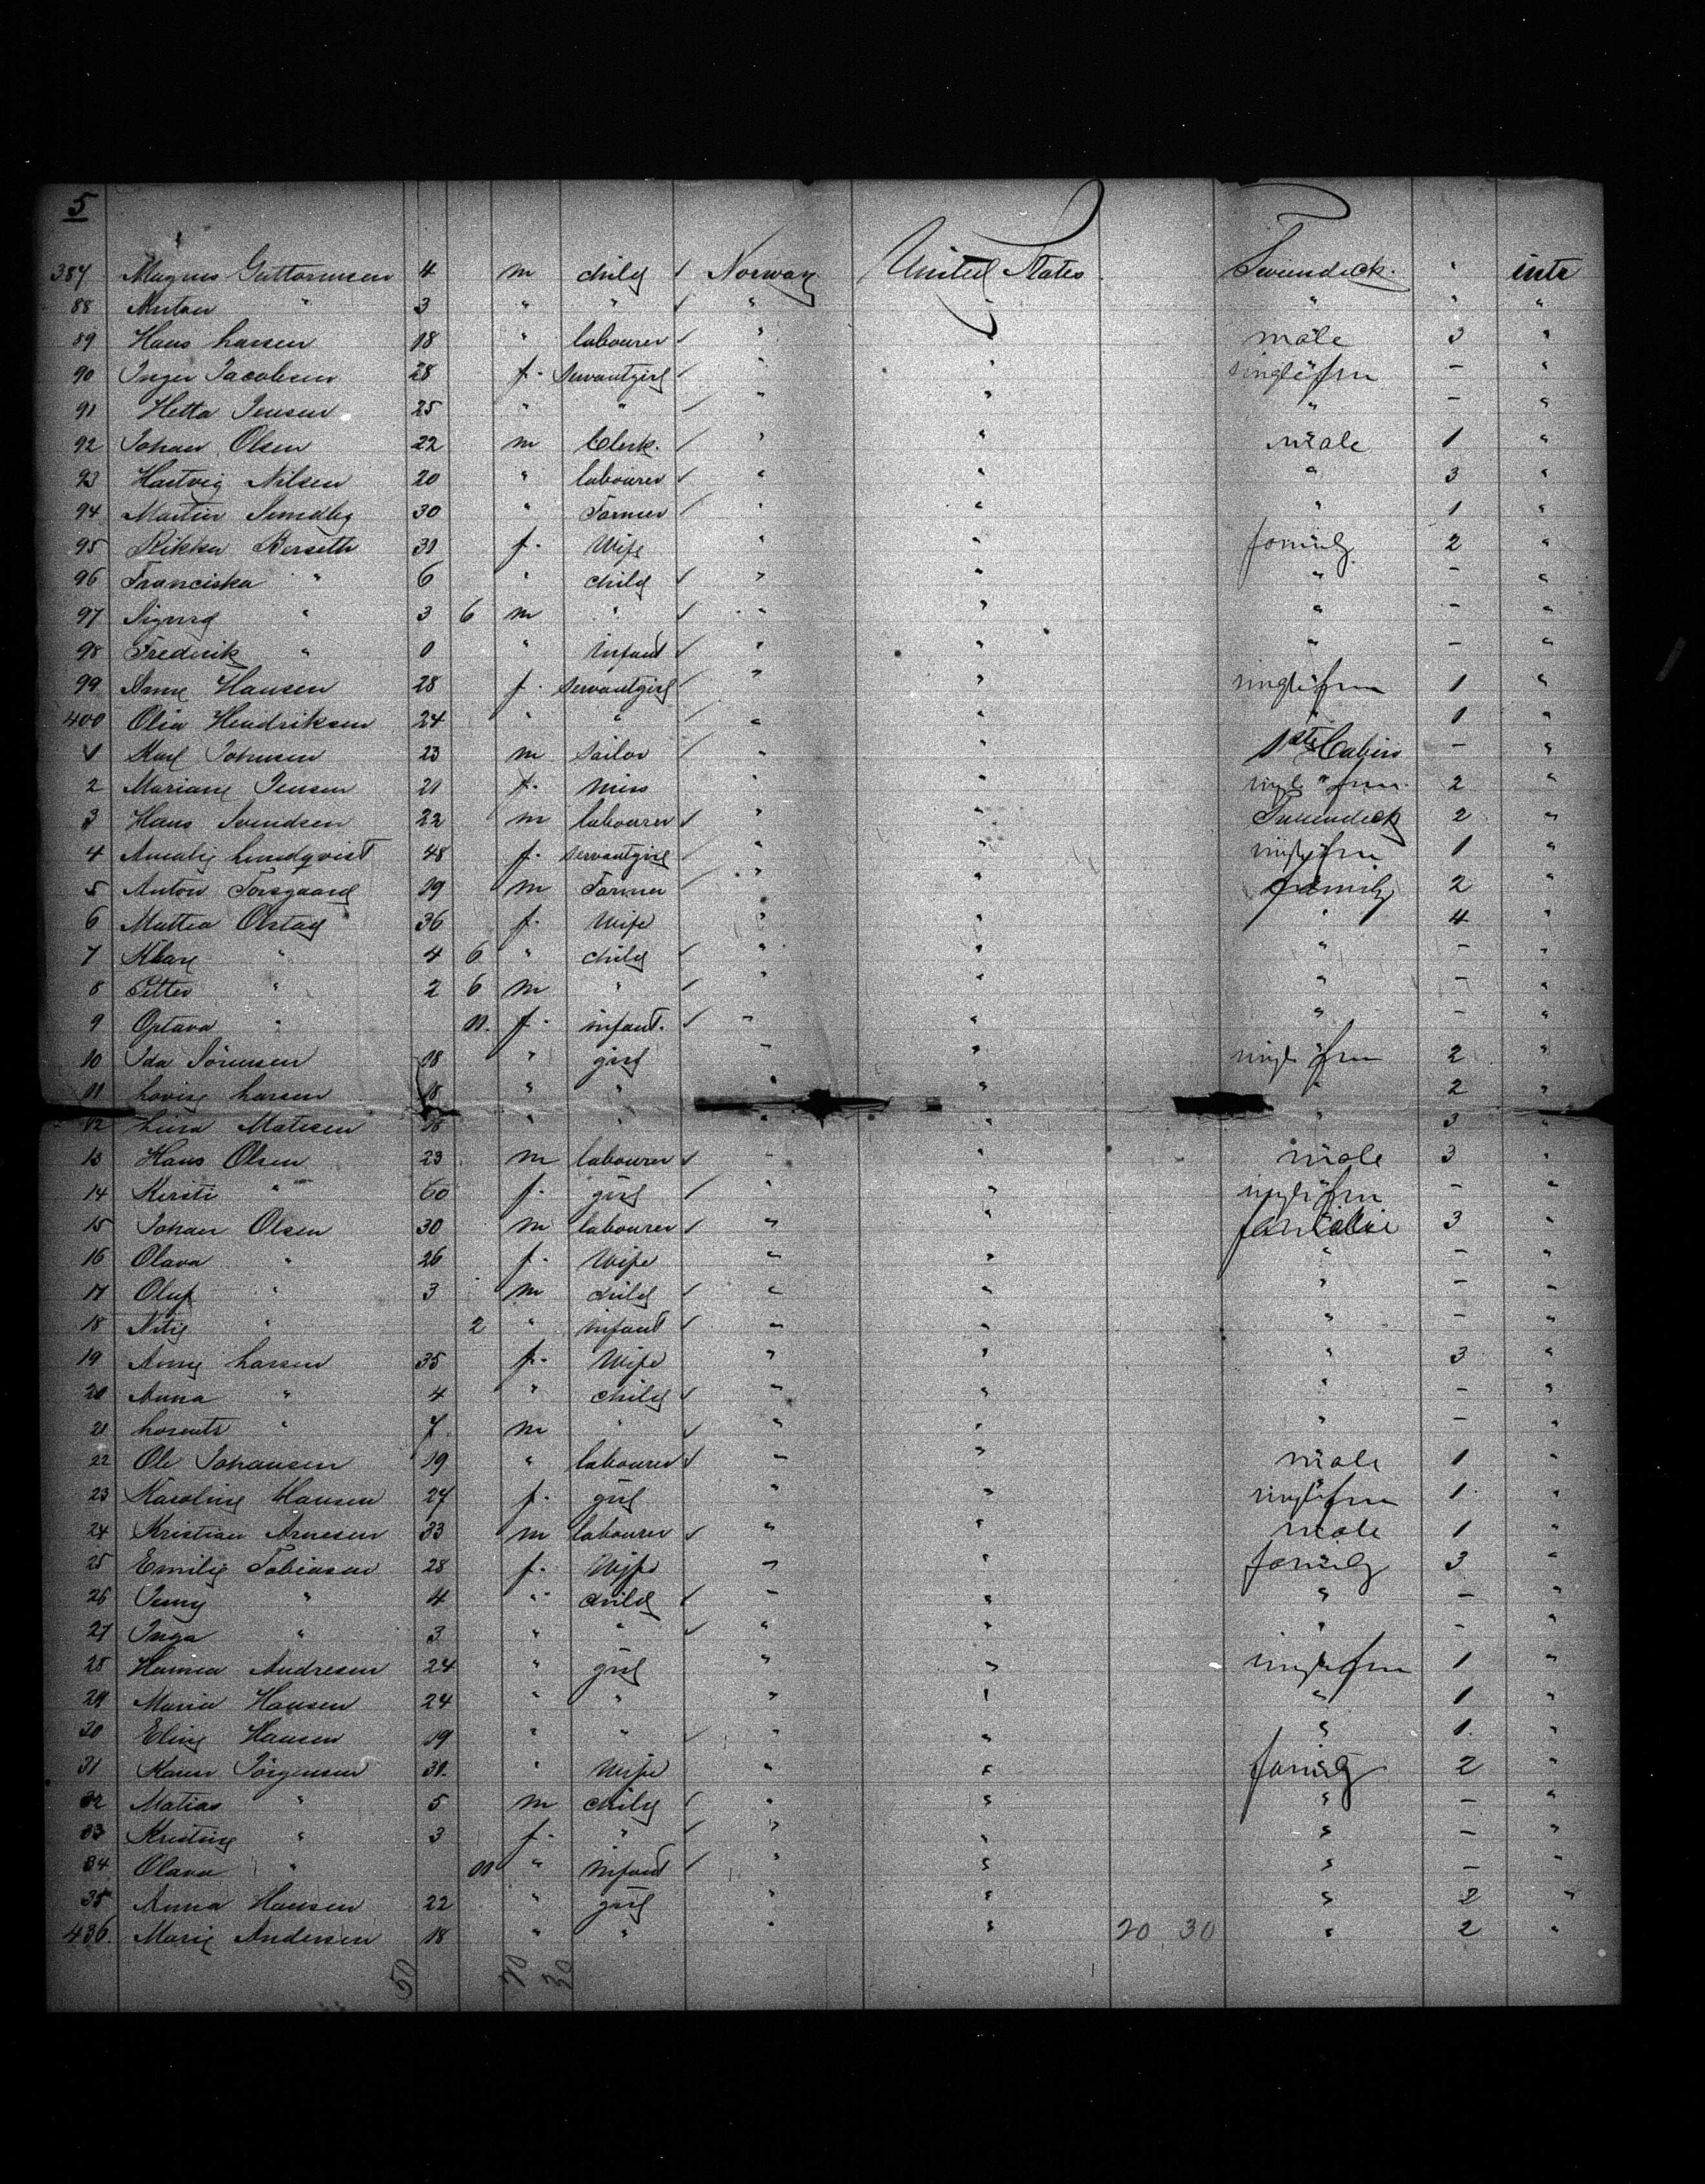 5
387 Magnus Guttormsen 4 m child ✓ Norway United States Tweendeck. " intr
88 Anton " 3 " " ✓ " " " " "
89 Hans Larsen 18 " labourer ✓ " " male 3 "
90 Inger Jacobsen 28 f. Servantgirl ✓ " " single frn — "
91 Hetta Jensen 25 " " ✓ " " " — "
92 Johan Olsen 22 m Clerk. ✓ " " male 1 "
93 Hartvig Nilsen 20 " labourer ✓ " " " 3 "
94 Martin 30 " Farmer ✓ " " " 1 "
95 Rikka Berseth 31 f. Wife " " family 2 "
96 Franciska " 6 " child ✓ " " " — "
97 Sigurd " 3 6 m " ✓ " " " — "
98 Frederik " 0 " Infant ✓ " " " — "
99 Anne Hansen 28 f. Servantgirl ✓ " " single frn 1 "
400 Olia Hendriksen 24 " " ✓ " " " 1 "
1 Karl Johnsen 23 m Sailor ✓ " " Cabin — "
2 Mariane Jensen 21 f. Miss " " single frn. 2 "
3 Hans Svendsen 22 m labourer ✓ " " Tweendeck 2 "
4 Amalie Lundqvist 48 f. Servantgirl ✓ " " single frn 1 "
5 Anton Torsgaard 19 m Farmer ✓ " " family 2 "
6 Mattea Olstad 36 f. Wife " " " 4 "
7 " 4 6 " child ✓ " " " — "
8 Petter " 2 6 m " ✓ " " " — "
9 Optava " 11. f. infant. ✓ " " " — "
10 Ida Sörensen 18 " girl " " single frn 2 "
11 Lovise Larsen 18 " " " " " 2 "
12 Lina Matesen " " " " " 3 "
13 Hans Olsen 23 m labourer ✓ " " male 3 "
14 Kirsti " 60 f. girl ✓ " " single frn — "
15 Johan Olsen 30 m labourer ✓ " " 3 "
16 Olava " 26 f. Wife " " " — "
17 Oluf " 3 m child ✓ " " " — "
18 " 2 " infant ✓ " " " — "
19 Anne Larsen 35 f. Wife " " " 3 "
20 Anna " 4 " child ✓ " " " — "
21 Lorents " 7 m " ✓ " " " — "
22 Ole Johansen 19 " labourer ✓ " " male 1 "
23 Karoline Hansen 27 f. girl " " single frn 1 "
24 Kristian Arnesen 33 m labourer ✓ " " male 1 "
25 Emilie Tobiasen 28 f. Wife " " family 3 "
26 Jenny " 4 " child ✓ " " " — "
27 Inga " 3 " " ✓ " " " — "
28 Hanna Andresen 24 " girl " " single frn 1 "
29 Maria Hansen 24 " " " " " 1 "
30 Eline Hansen 19 " " ✓ " " " 1. "
31 Karen Jörgensen 31. " Wife " " family 2 "
32 Matias " 5 m child ✓ " " " — "
33 Kristine " 3 f. " ✓ " " " — "
34 Olava " 11 " infant ✓ " " " — "
35 Anna Hansen 22 " girl " " " 2 "
436. Marie Andersen 18 " " " " 20 30 " 2 "
50 20 30